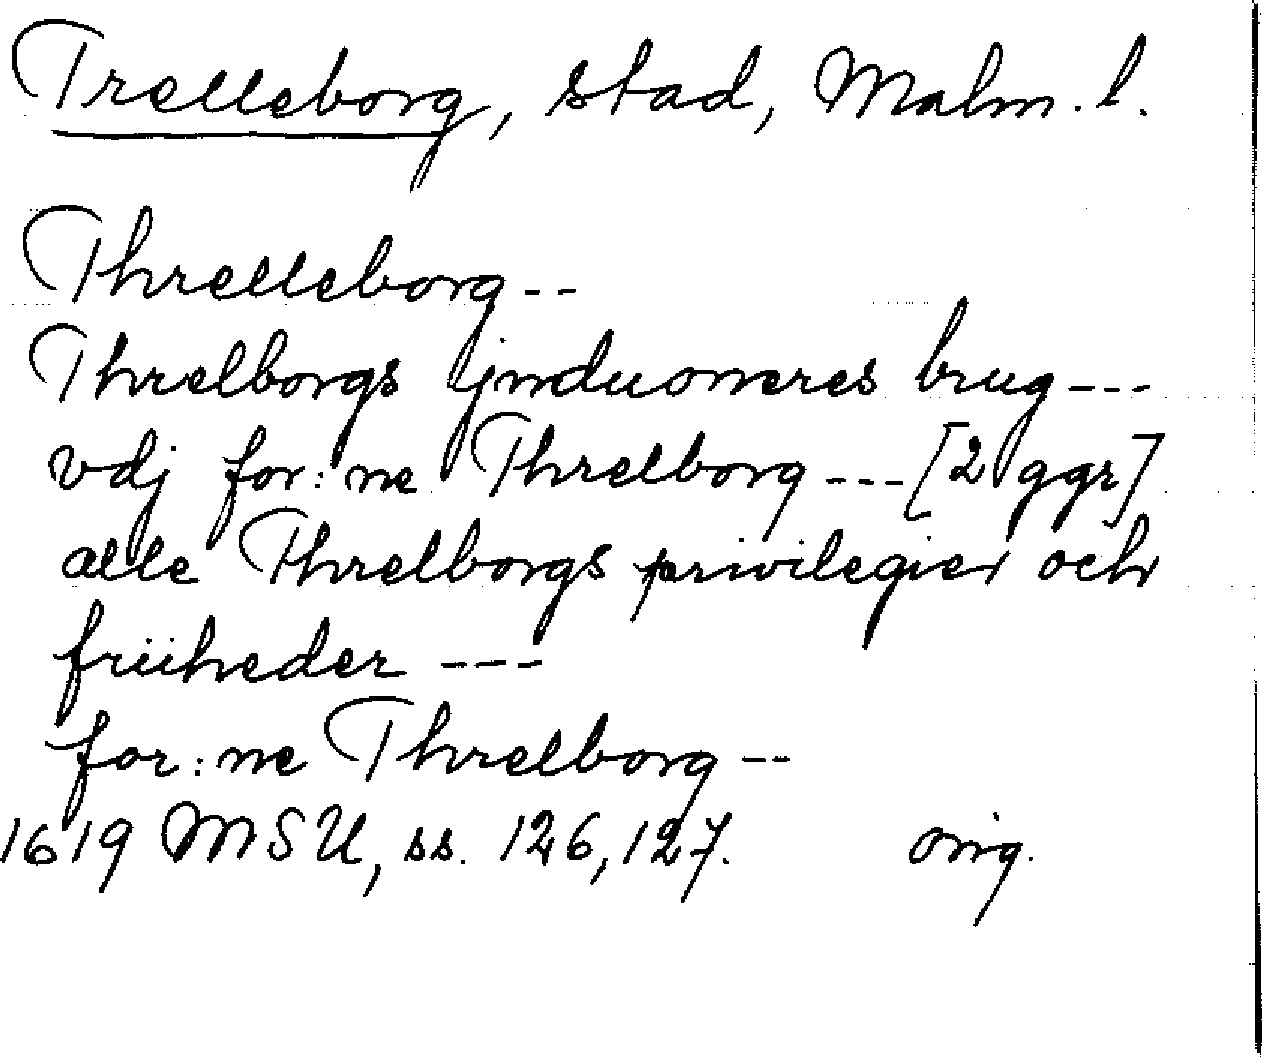 Trelleborg, stad, Malm. l.
Threlleborg --
Threlborgs jnduoneres brug ---
vdj for: ne Threlborg --- [2 ggr]
alle Threlborgs privilegier och
friiheder ---
for: ne Threlborg --
1619 MSU, ss. 126, 127. orig.